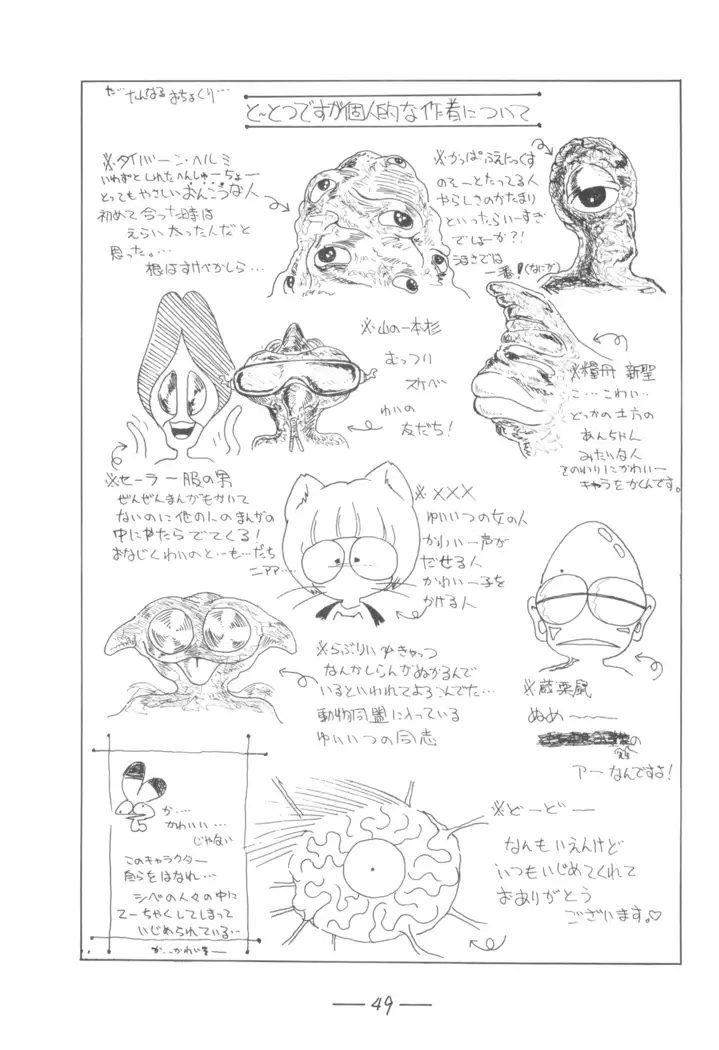 だ…たんなるおちょくり…
と~とつですが個人的な作者について
※ダイバーン・ヘルミ
いわずとしれたへんしゅーちょー
とってもやさしいおんこうな人
初めて合った時は
えらい太った人だと
思った。…
根はすけべかしら…
※かっぱふぇにっくす
のそーとたってる人
やらしさのかたまり
といったらいーすぎ
でしょーか?!
うまさでは
一番!(なにが)
※山の一本杉
むっつり
スケベ
ゆいの
友だち!
※糧舟 新聖
こ…こわい…
どっかの土方の
あんちゃん
みたいな人
そのわりにかわいー
キャラをかくんです。
※セーラー服の男
ぜんぜんまんがもかいて
ないのに他の人のまんがの
中にやたらでてくる!
おなじくわいのと…も…だち
ニアア…
※×××
ゆいいつの女の人
かわいー声が
だせる人
かわいー子を
かける人
※らぶりい♥きゃっつ
なんかしらんがぬかるんで
いるといわれてよろこんでた…
動物同盟に入っている
ゆいいつの同志
※蔵栗鼠
ぬめー
の
アーなんですよ!
か…
かわいい…
じゃない
このキャラクター
危らをはなれ…
シベの人々の中に
てーちゃくしてしまって
いじめられている…
お…かわいそー
※どーどー
なんもいえんけど
いつもいじめてくれて
おありがとう
ございます。♡
49